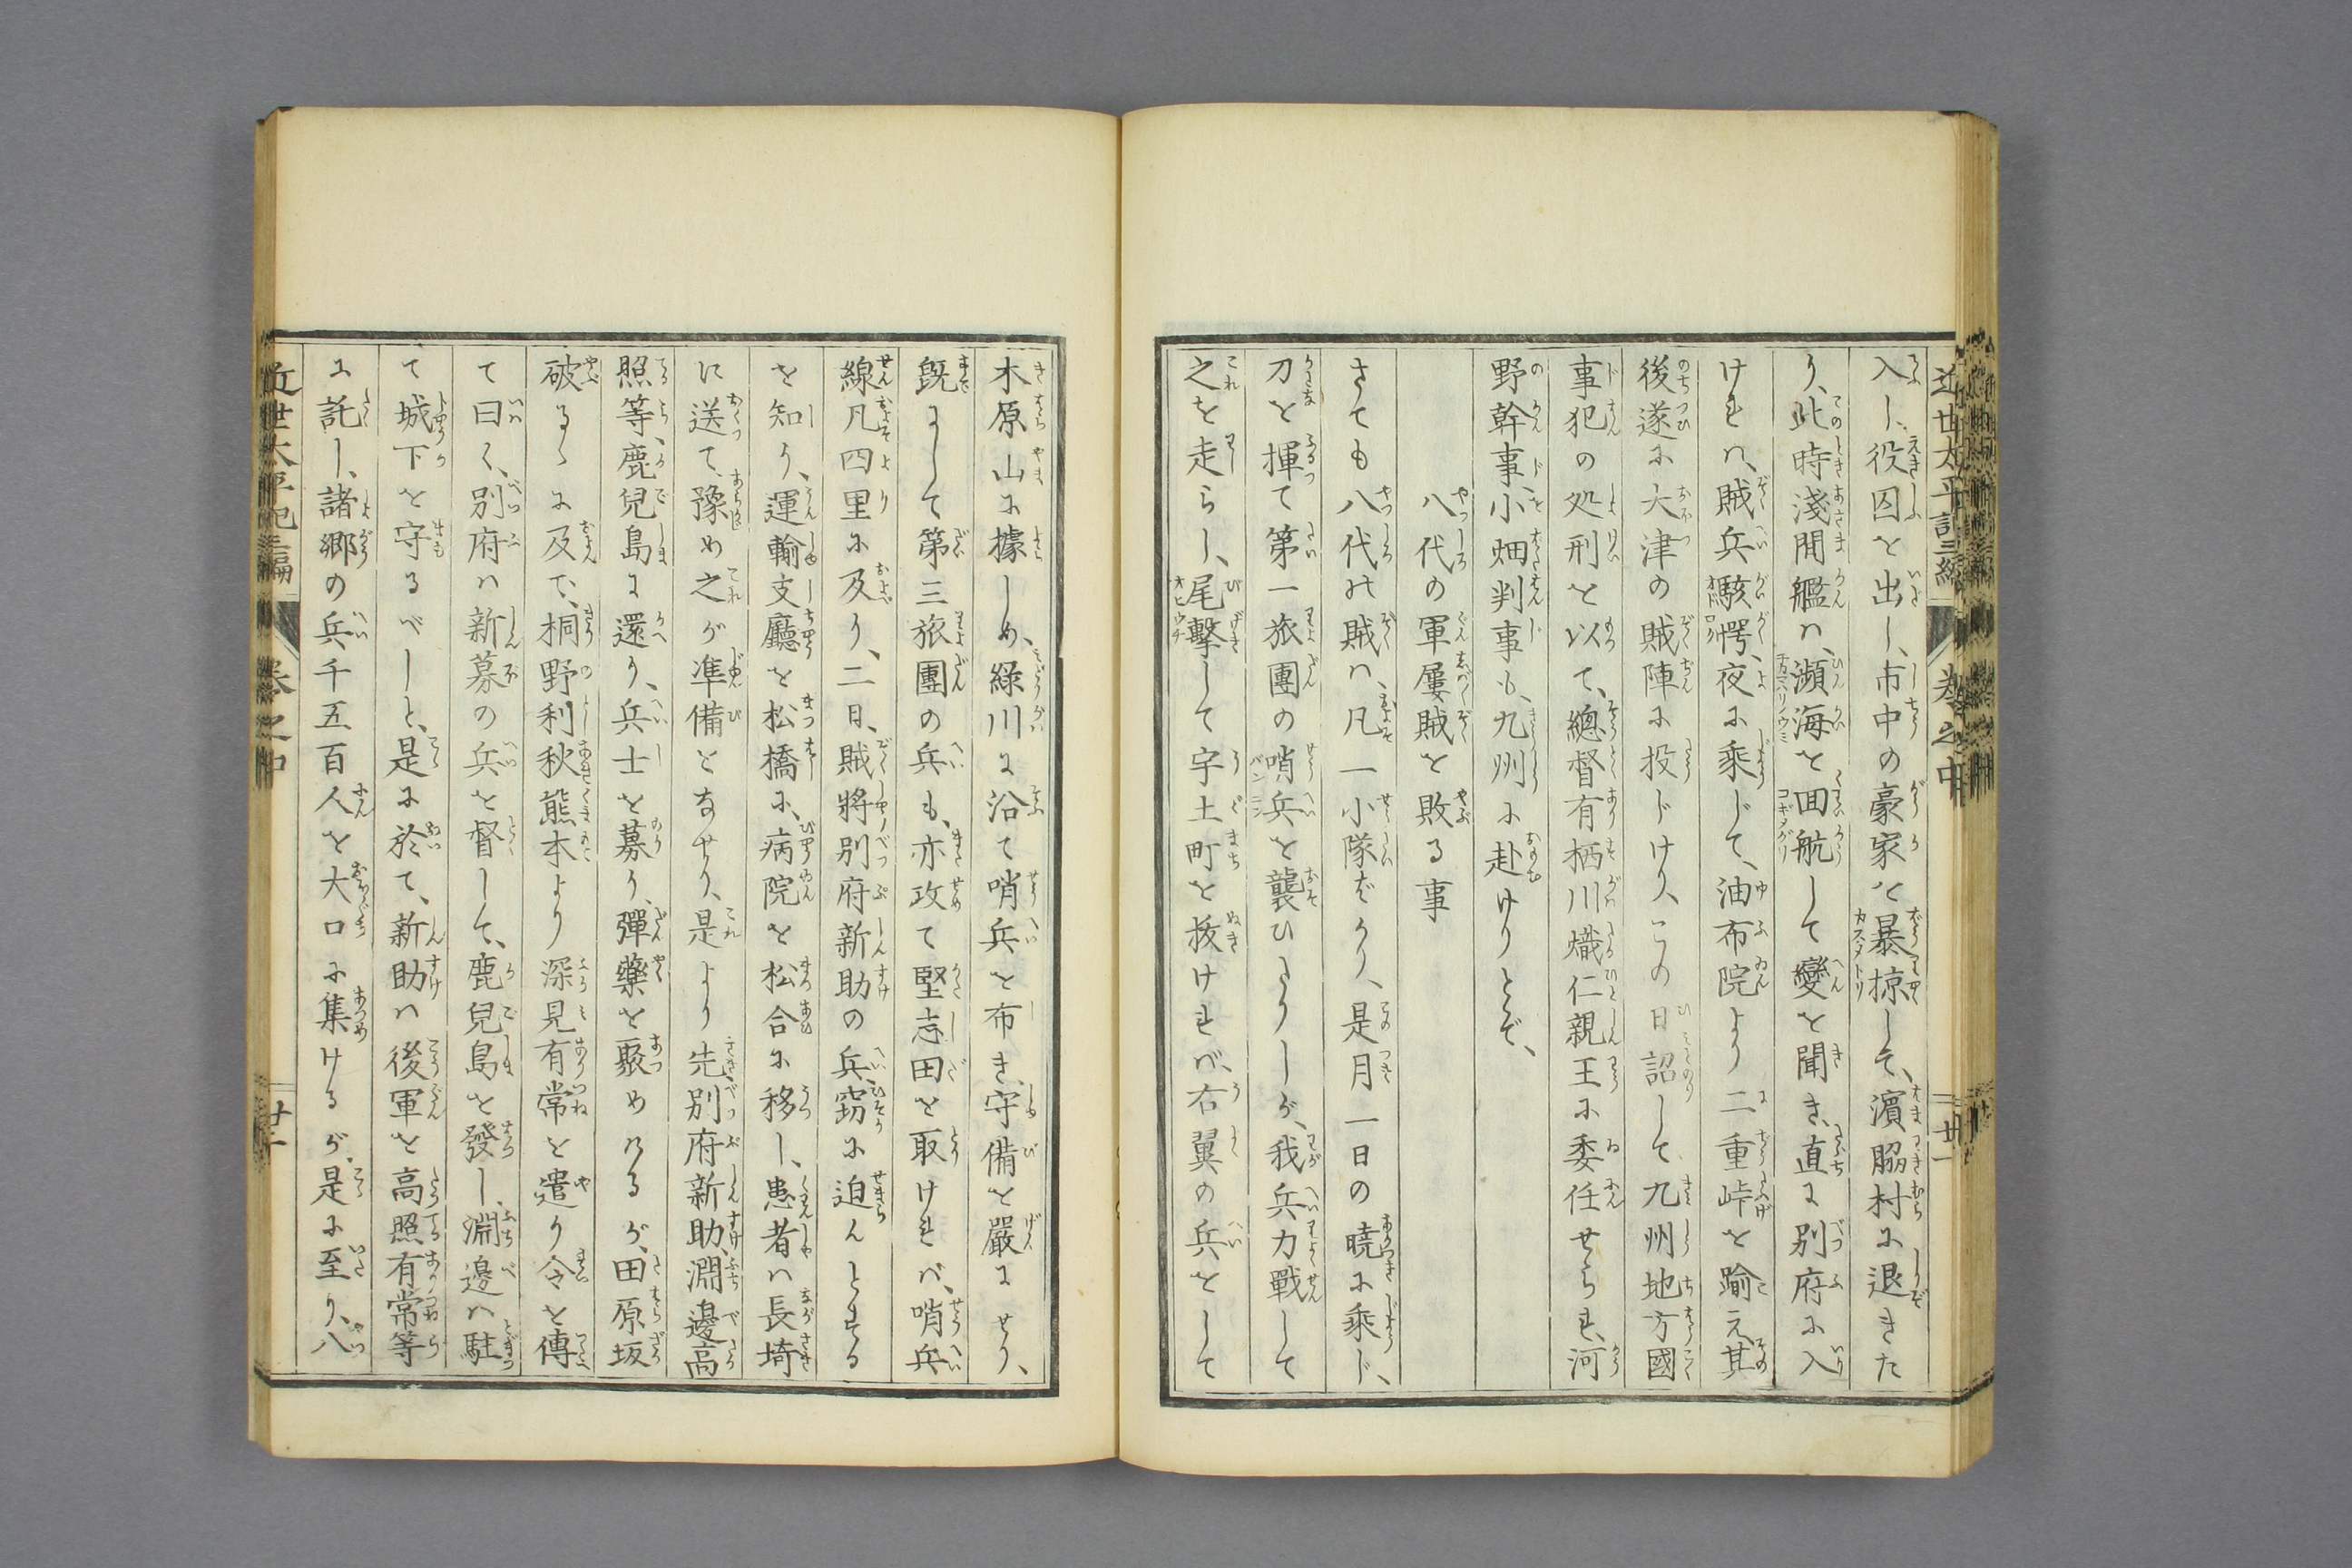 近世太平記三編 卷之中 廿一
入し、役囚を出し、市中の豪家を暴掠して、濱脇村に退きた
り、此時淺間艦ハ、瀕海を回航して變を聞き、直に別府に入
けれハ、賊兵駭愕、夜に乘じて、油布院より二重峠を踰え其
後遂に大津の賊陣に投じけり、この日詔して九州地方國
事犯の処刑を以て、總督有栖川熾仁親王に委任せられ、河
野幹事、小畑判事も、九州に赴けりとぞ、
八代の軍屢賊を敗る事
さても八代の賊ハ、凡一小隊ばかり、是月一日の曉に乘じ、
刀を揮て第一旅團の哨兵を襲ひたりしが、我兵力戰して
之を走らし、尾擊して宇土町を抜けれバ、右翼の兵をして
木原山に據しめ、緑川に沿て哨兵を布き、守備を嚴にせり、
既にして第三旅團の兵も、亦攻て堅志田を取けれバ、哨兵
線凡四里に及り、二日、賊將別府新助の兵、窃に迫んとする
を知り、運輸支廳を松橋に、病院を松合に移し、患者ハ長埼
に送て、豫め之が準備をなせり、是より先、別府新助、淵邊高
照等、鹿兒島に還り、兵士を募り、彈藥を聚めけるが、田原坂
破るゝに及で、桐野利秋熊本より深見有常を遣り令を傳
て曰く、別府ハ新募の兵を督して、鹿兒島を發し、淵邊ハ駐
て城下を守るべしと、是に於て、新助ハ後軍を高照有常等
に託し、諸郷の兵千五百人を大口に集けるが、是に至り、八
近世太平記三編 卷之中 廿二